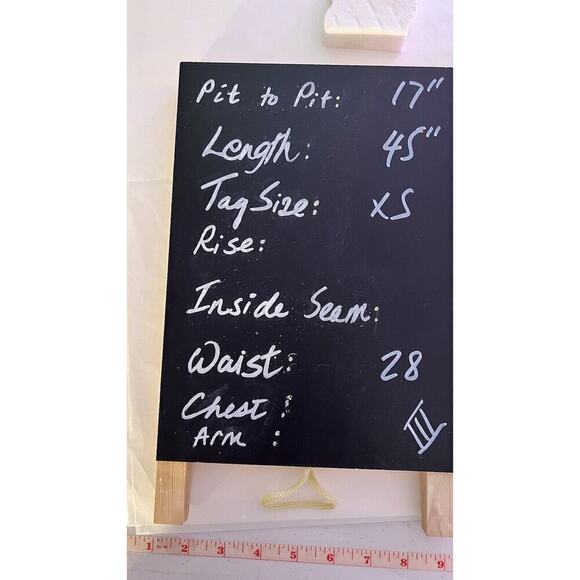 Pit to Pit: 17"
Length: 45"
Tag Size: XS
Rise:
Inside Seam:
Waist: 28
Chest:
Arm:
III
1 2 3 4 5 6 7 8 9